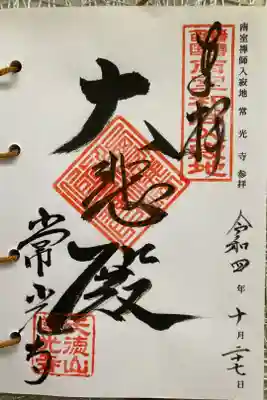 南室禅師入寂地 常光寺参拝
令和四年十月二十七日
奉拝
大悲殿
常光寺
天徳山